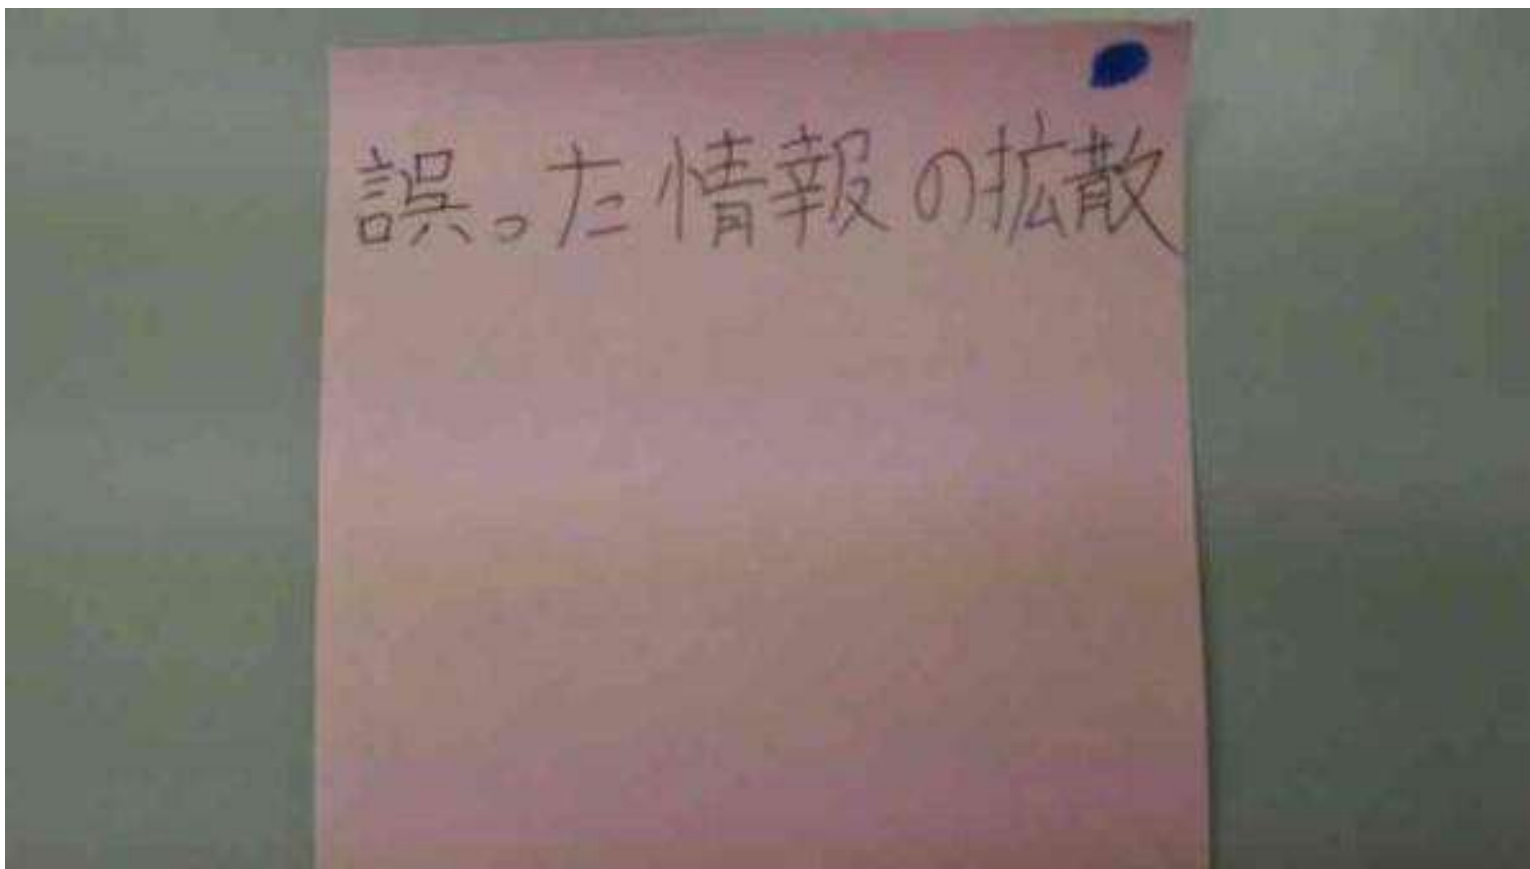 誤った情報の拡散